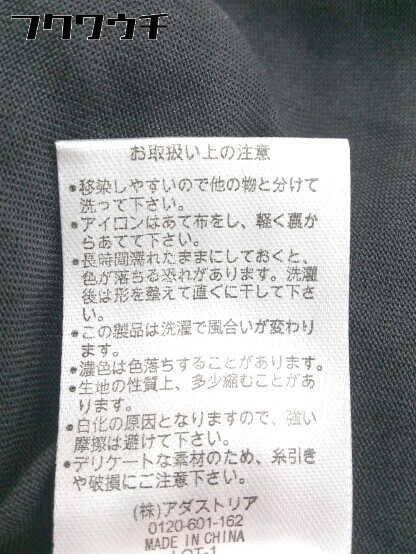 フクワウチ
お取扱い上の注意
●移染しやすいので他の物と分けて
洗って下さい。
●アイロンはあて布をし、軽く裏か
らあてて下さい。
●長時間濡れたままにしておくと、
色が落ちる恐れがあります。洗濯
後は形を整えて直ぐに干して下さ
い。
●この製品は洗濯で風合いが変わり
ます。
●濃色は色落ちすることがあります。
●生地の性質上、多少縮むことがあ
ります。
●白化の原因となりますので、強い
摩擦は避けて下さい。
●デリケートな素材のため、糸引き
や破損にご注意下さい。
(株)アダストリア
0120-601-162
MADE IN CHINA
LOT-1